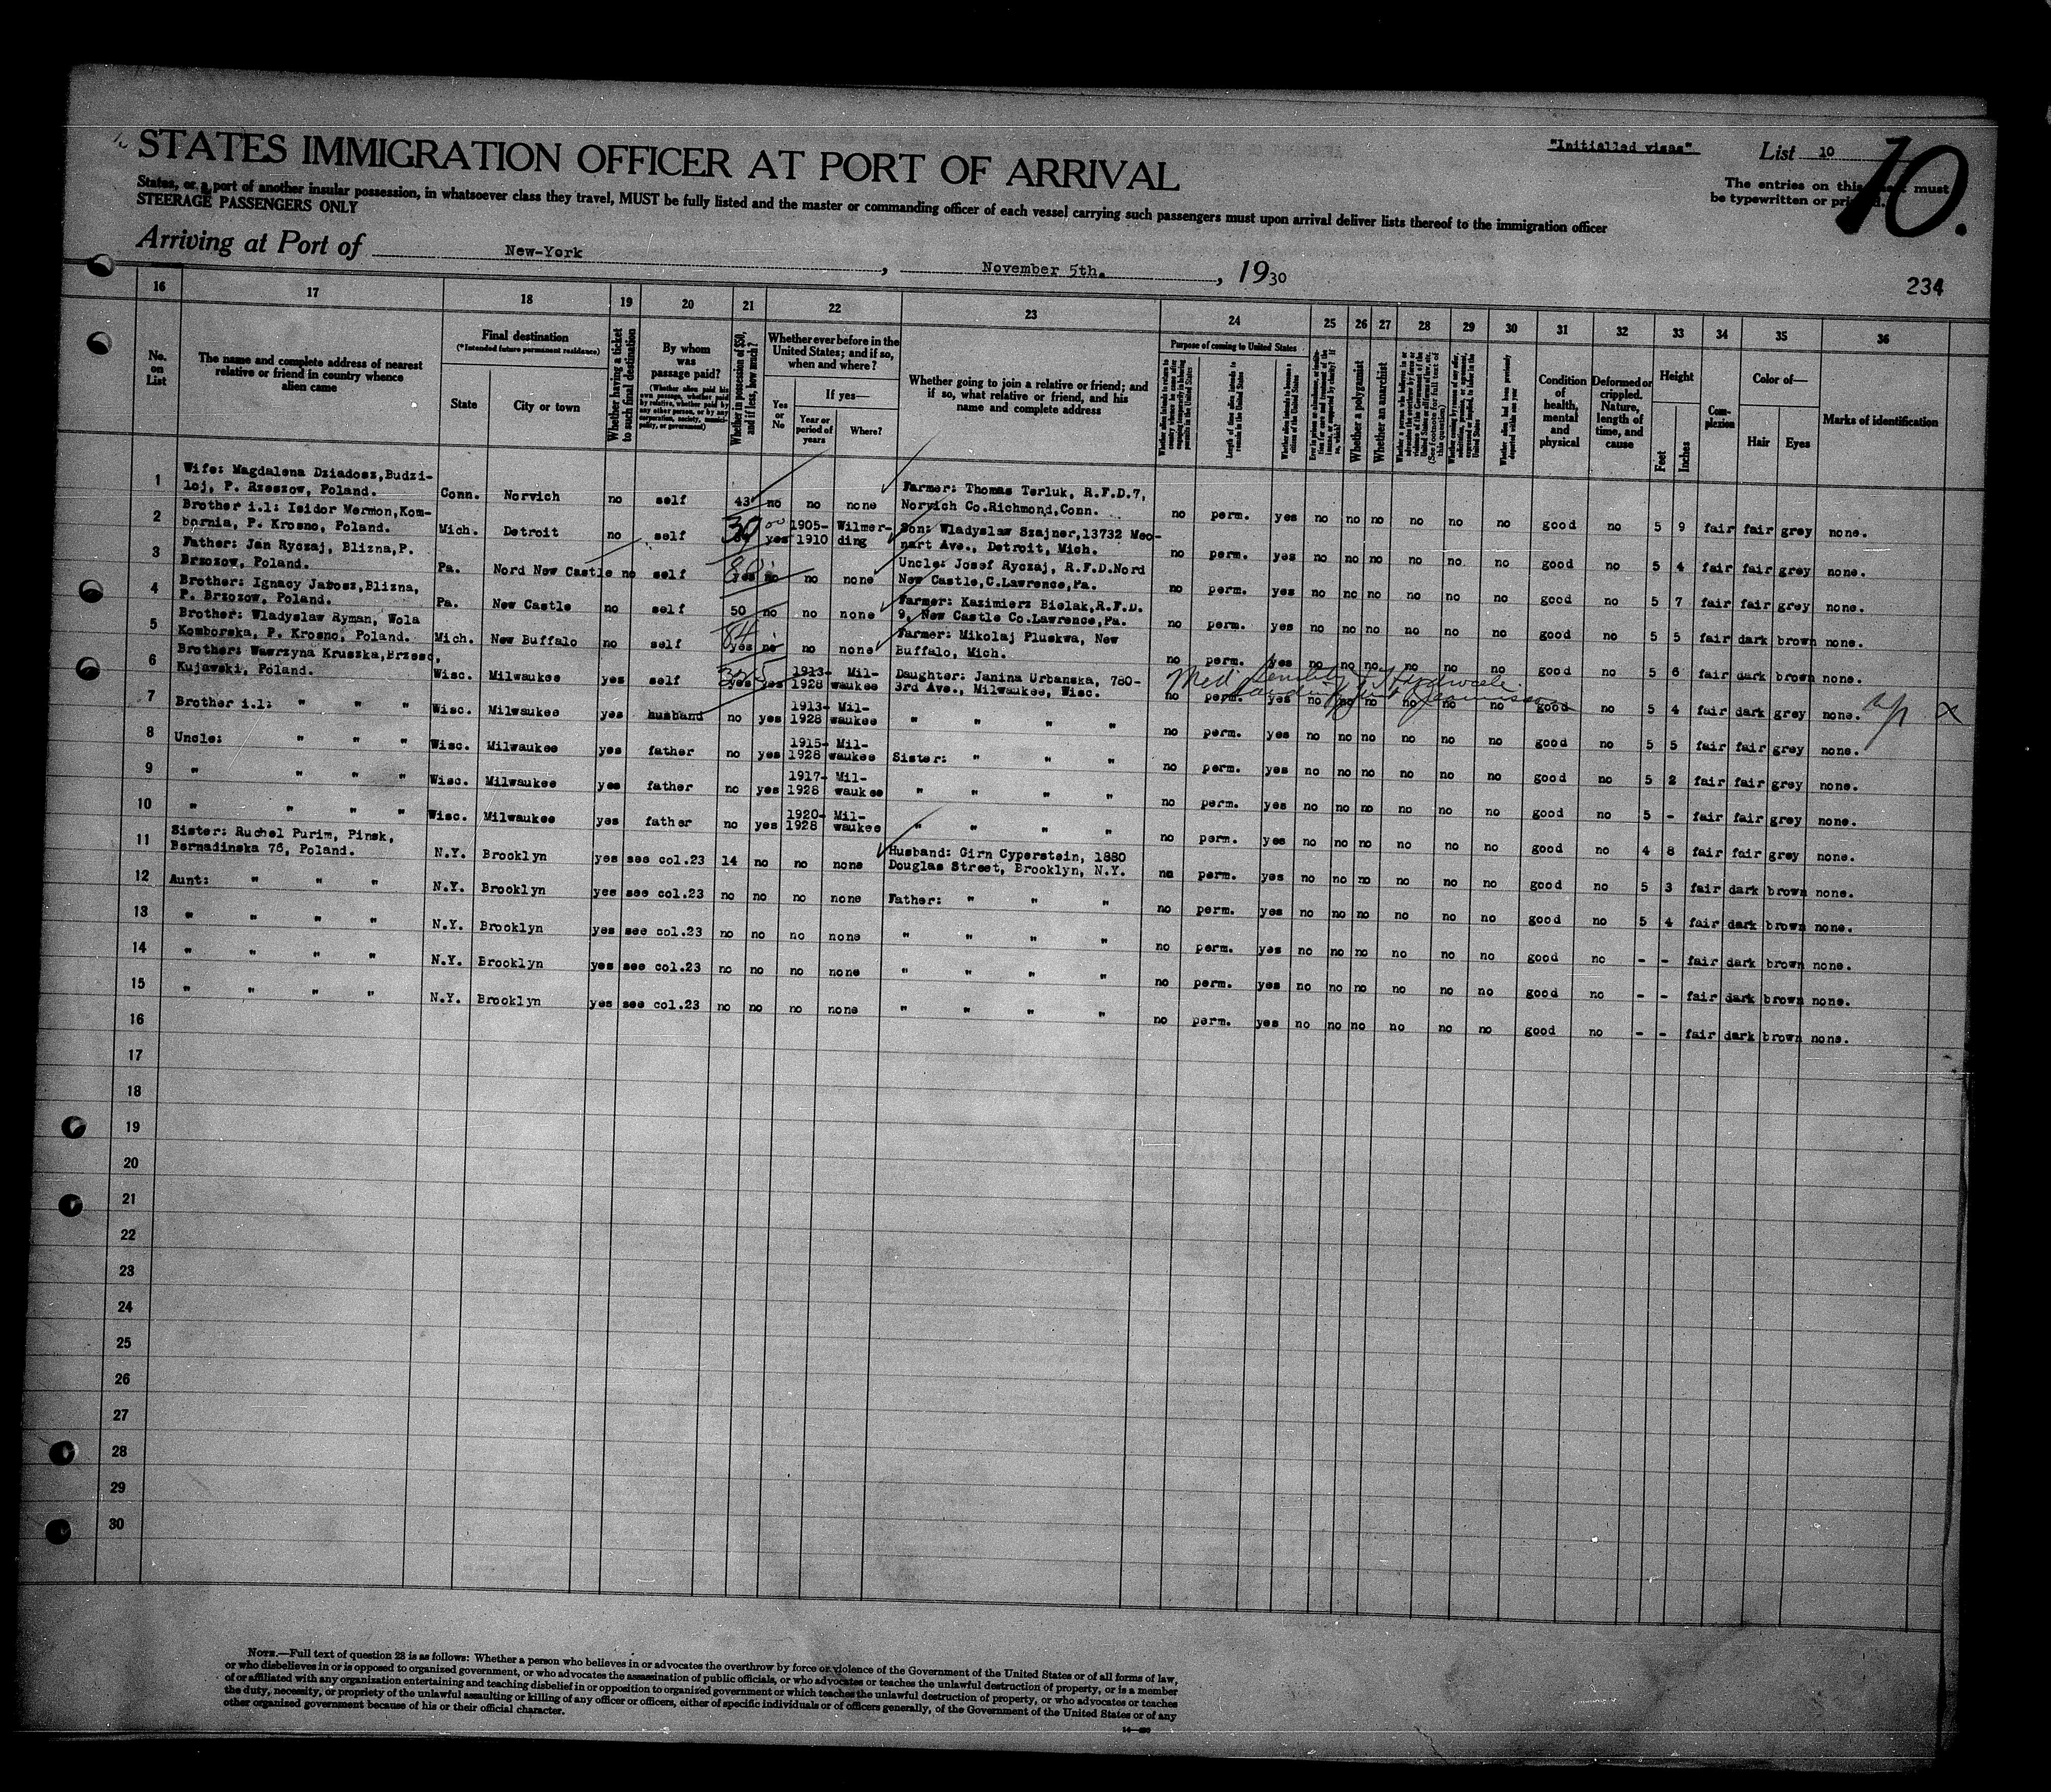 STATES IMMIGRATION OFFICER AT PORT OF ARRIVAL
"Initialled visas"
List 10
10.
The entries on this must
be typewritten or
States, or a port of another insular possession, in whatsoever class they travel, MUST be fully listed and the master or commanding officer of each vessel carrying such passengers must upon arrival deliver lists thereof to the immigration officer
STEERAGE PASSENGERS ONLY
Arriving at Port of New-York, November 5th., 1930
234
16 17 18 19 20 21 22 23 24 25 26 27 28 29 30 31 32 33 34 35 36
No. on List
The name and complete address of nearest relative or friend in country whence alien came
Final destination
(*Intended future permanent residence)
State
City or town
Whether having a ticket to such final destination
By whom was passage paid?
(Whether alien paid his own passage, whether paid by relative, whether paid by any other person, or by any corporation, society, municipality, or government)
Whether in possession of $50, and if less, how much?
Whether ever before in the United States; and if so, when and where?
Yes or No
If yes—
Year or period of years
Where?
Whether going to join a relative or friend; and if so, what relative or friend, and his name and complete address
Purpose of coming to United States
Length of time alien intends to remain in the United States
Whether alien intends to become a citizen of the United States
Whether a polygamist
Whether an anarchist
(See footnote for full text of this question)
Condition of health, mental and physical
Deformed or crippled. Nature, length of time, and cause
Height
Feet
Inches
Complexion
Color of—
Hair
Eyes
Marks of identification
1 Wife: Magdalena Dziadosz, Budzi-
loj, P. Rzeszow, Poland. Conn. Norvich no self 43 no no none Farmer: Thomas Terluk, R.F.D.7,
Norvich Co.Richmond,Conn. no perm. yes no no no no no no good no 5 9 fair fair grey none.
2 Brother i.l: Isidor Mermon,Kom-
bornia, P. Krosno, Poland. Mich. Detroit no self 39 yes 1905-
1910 Wilmer-
ding Son: Wladyslaw Szajner,13732 Meo-
nart Ave., Detroit, Mich. no perm. yes no no no no no no good no 5 4 fair fair grey none.
3 Father: Jan Ryczaj, Blizna,P.
Brzozow, Poland. Pa. Nord New Castle no self 80 yes no no none Uncle: Josef Ryczaj, R.F.D.Nord
New Castle,C.Lawrence,Pa. no perm. yes no no no no no no good no 5 7 fair fair grey none.
4 Brother: Ignacy Jabosz,Blizna,
P. Brzozow, Poland. Pa. New Castle no self 50 no no none Farmer: Kazimierz Bielak,R.F.D.
9, New Castle Co.Lawrence,Pa. no perm. yes no no no no no no good no 5 5 fair dark brown none.
5 Brother: Wladyslaw Ryman, Wola
Komborska, P. Krosno, Poland. Mich. New Buffalo no self 84 yes no no none Farmer: Mikolaj Pluskwa, New
Buffalo, Mich. no perm. yes no no no no no no good no 5 6 fair dark brown none.
6 Brother: Wawrzyna Kruszka,Brzesc,
Kujawski, Poland. Wisc. Milwaukee yes self 325 yes yes 1913-
1928 Mil-
waukee Daughter: Janina Urbanska, 780-
3rd Ave., Milwaukee, Wisc. no perm. yes no no no no no no good no 5 4 fair dark grey none.
7 Brother i.l: " " " Wisc. Milwaukee yes husband no yes 1913-
1928 Mil-
waukee " " " no perm. yes no no no no no no good no 5 5 fair fair grey none.
8 Uncle: " " " Wisc. Milwaukee yes father no yes 1915-
1928 Mil-
waukee Sister: " " " no perm. yes no no no no no no good no 5 2 fair fair grey none.
9 " " " " Wisc. Milwaukee yes father no yes 1917-
1928 Mil-
waukee " " " " no perm. yes no no no no no no good no 5 - fair fair grey none.
10 " " " " Wisc. Milwaukee yes father no yes 1920-
1928 Mil-
waukee " " " " no perm. yes no no no no no no good no 4 8 fair fair grey none.
11 Sister: Ruchel Purim, Pinsk,
Bernadinska 76, Poland. N.Y. Brooklyn yes see col.23 14 no no none Husband: Girn Cyperstein, 1880
Douglas Street, Brooklyn, N.Y. no perm. yes no no no no no no good no 5 3 fair dark brown none.
12 Aunt: " " " N.Y. Brooklyn yes see col.23 no no no none Father: " " " no perm. yes no no no no no no good no 5 4 fair dark brown none.
13 " " " " N.Y. Brooklyn yes see col.23 no no no none " " " " no perm. yes no no no no no no good no - - fair dark brown none.
14 " " " " N.Y. Brooklyn yes see col.23 no no no none " " " " no perm. yes no no no no no no good no - - fair dark brown none.
15 " " " " N.Y. Brooklyn yes see col.23 no no no none " " " " no perm. yes no no no no no no good no - - fair dark brown none.
16
17
18
19
20
21
22
23
24
25
26
27
28
29
30
NOTE.—Full text of question 28 is as follows: Whether a person who believes in or advocates the overthrow by force or violence of the Government of the United States or of all forms of law,
or who disbelieves in or is opposed to organized government, or who advocates the assassination of public officials, or who advocates or teaches the unlawful destruction of property, or is a member
of or affiliated with any organization entertaining and teaching disbelief in or opposition to organized government or which teaches the unlawful destruction of property, or who advocates or teaches
the duty, necessity, or propriety of the unlawful assaulting or killing of any officer or officers, either of specific individuals or of officers generally, of the Government of the United States or of any
other organized government because of his or their official character.